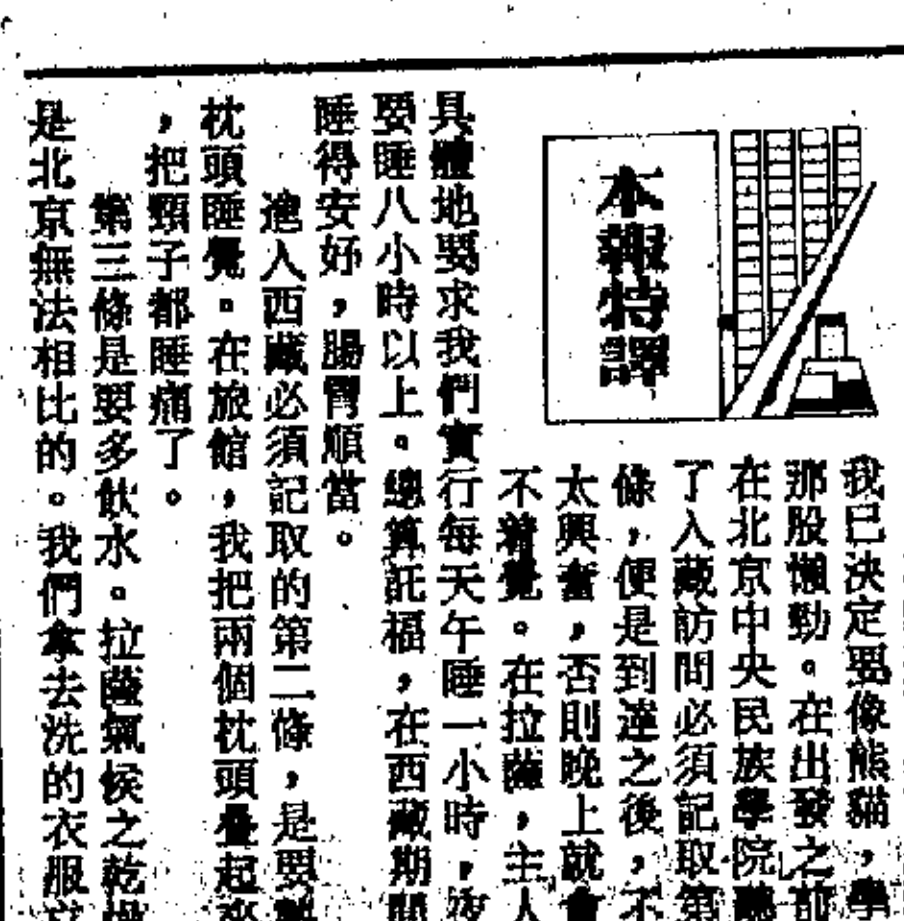 本報特譯
我已決定要像熊貓，學
那股懶勁。在出發之前
在北京中央民族學院聽
了入藏訪問必須記取第
條，便是到達之後，不
太興奮，否則晚上就會
不着覺。在拉薩，主人
具體地要求我們實行每天午睡一小時，夜
要睡八小時以上。總算託福，在西藏期間
睡得安好，腸胃順當。
進入西藏必須記取的第二條，是要
枕頭睡覺。在旅館，我把兩個枕頭疊起來
，把頸子都睡痛了。
第三條是要多飲水。拉薩氣候之乾燥
是北京無法相比的。我們拿去洗的衣服